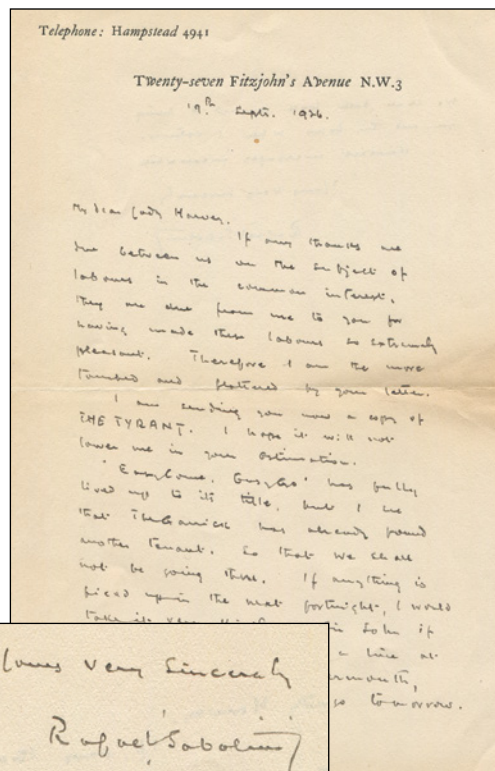 Telephone: Hampstead 4941
Twenty-seven Fitzjohn's Avenue N.W.3
19th Septr. 1926.
My dear Lady Harvey.
If any thanks are
due between us on the subject of
labours in the common interest,
they are due from me to you for
having made these labours so extremely
pleasant. Therefore I am the more
touched and flattered by your letter.
I am sending you now a copy of
THE TYRANT. I hope it will not
lower me in your estimation.
"Easy Come. Easy Go" has fully
lived up to its title, but I see
that The Garrick has already found
another tenant. So that we shall
not be going there. If anything is
fixed up in the next fortnight, I would
take it very if
a line at
go tomorrow.
Yours very Sincerely
Rafael Sabatini